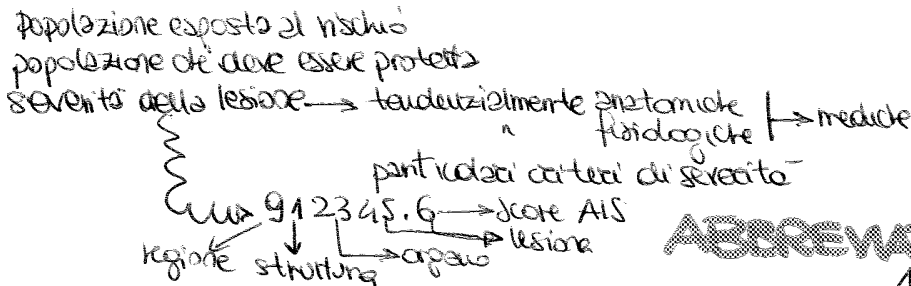 popolazione esposta al rischio
popolazione che deve essere protetta
severità della lesione → tendenzialmente anatomiche
" fisiologiche → mediche
particolari criteri di severità
912345.6 → score AIS
→ lesione
regione struttura → organo